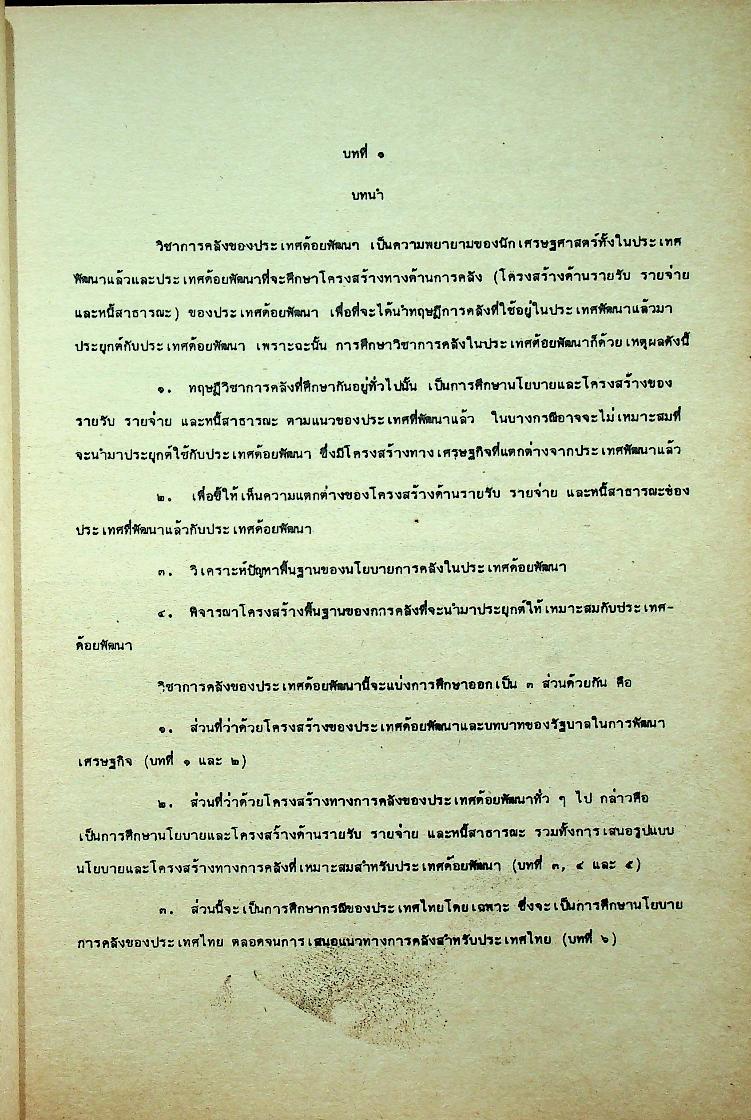 บทที่ ๑
บทนำ
วิชาการคลังของประเทศด้อยพัฒนา เป็นความพยายามของนักเศรษฐศาสตร์ทั้งในประเทศ
พัฒนาแล้วและประเทศด้อยพัฒนาที่จะศึกษาโครงสร้างทางด้านการคลัง (โครงสร้างด้านรายรับ รายจ่าย
และหนี้สาธารณะ) ของประเทศด้อยพัฒนา เพื่อที่จะได้นำทฤษฎีการคลังที่ใช้อยู่ในประเทศพัฒนาแล้วมา
ประยุกต์กับประเทศด้อยพัฒนา เพราะฉะนั้น การศึกษาวิชาการคลังในประเทศด้อยพัฒนาก็ด้วยเหตุผลดังนี้
๑. ทฤษฎีวิชาการคลังที่ศึกษากันอยู่ทั่วไปนั้น เป็นการศึกษานโยบายและโครงสร้างของ
รายรับ รายจ่าย และหนี้สาธารณะ ตามแนวของประเทศที่พัฒนาแล้ว ในบางกรณีอาจจะไม่เหมาะสมที่
จะนำมาประยุกต์ใช้กับประเทศด้อยพัฒนา ซึ่งมีโครงสร้างทางเศรษฐกิจที่แตกต่างจากประเทศพัฒนาแล้ว
๒. เพื่อชี้ให้เห็นความแตกต่างของโครงสร้างด้านรายรับ รายจ่าย และหนี้สาธารณะช่อง
ประเทศที่พัฒนาแล้วกับประเทศด้อยพัฒนา
๓. วิเคราะห์ปัญหาพื้นฐานของนโยบายการคลังในประเทศด้อยพัฒนา
๔. พิจารณาโครงสร้างพื้นฐานของการคลังที่จะนำมาประยุกต์ให้เหมาะสมกับประเทศ-
ด้อยพัฒนา
วิชาการคลังของประเทศด้อยพัฒนานี้จะแบ่งการศึกษาออกเป็น ๓ ส่วนด้วยกัน คือ
๑. ส่วนที่ว่าด้วยโครงสร้างของประเทศด้อยพัฒนาและบทบาทของรัฐบาลในการพัฒนา
เศรษฐกิจ (บทที่ ๑ และ ๒)
๒. ส่วนที่ว่าด้วยโครงสร้างทางการคลังของประเทศด้อยพัฒนาทั่ว ๆ ไป กล่าวคือ
เป็นการศึกษานโยบายและโครงสร้างด้านรายรับ รายจ่าย และหนี้สาธารณะ รวมทั้งการเสนอรูปแบบ
นโยบายและโครงสร้างทางการคลังที่เหมาะสมสำหรับประเทศด้อยพัฒนา (บทที่ ๓, ๔ และ ๕)
๓. ส่วนนี้จะเป็นการศึกษากรณีของประเทศไทยโดยเฉพาะ ซึ่งจะเป็นการศึกษานโยบาย
การคลังของประเทศไทย ตลอดจนการเสนอแนวทางการคลังสำหรับประเทศไทย (บทที่ ๖)